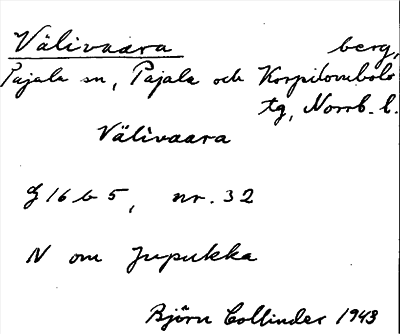 Välivaara berg,
Pajala sn, Pajala och Korpilombolo
tg, Norrb. l.
Välivaara
16 b 5, nr. 32
N om Jupukka
Björn Collinder 1943